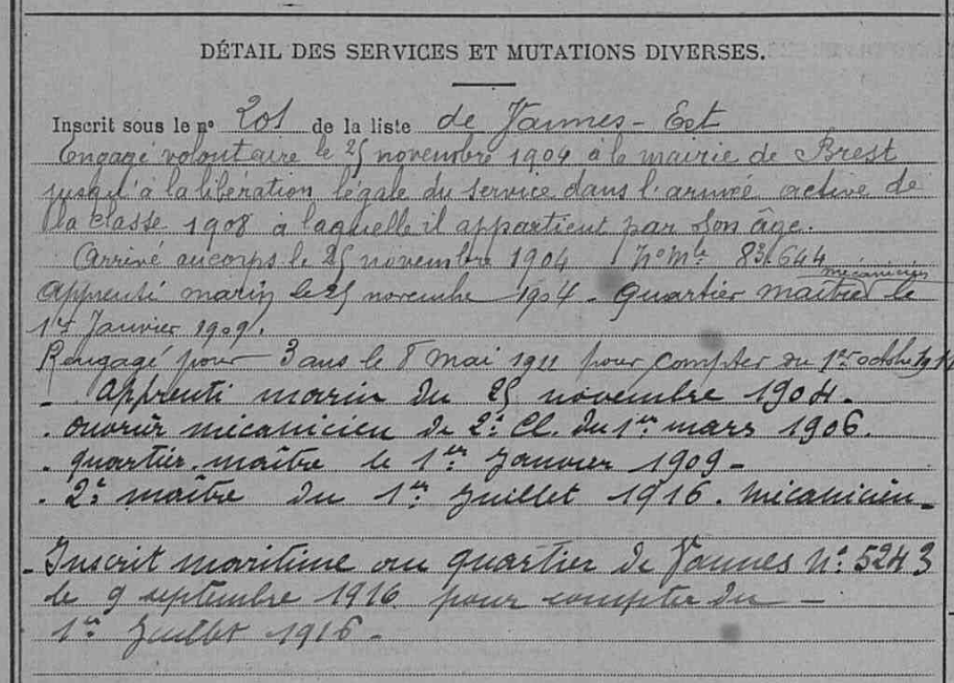 DÉTAIL DES SERVICES ET MUTATIONS DIVERSES.
Inscrit sous le nº 201 de la liste de Vannes - Est
Engagé volontaire le 25 novembre 1904 à la mairie de Brest
jusqu'à la libération légale du service dans l'armée active de
la classe 1908 à laquelle il appartient par son âge.
Arrivé au corps le 25 novembre 1904 Nº Mle 83644
mécanicien
Apprenti marin le 25 novembre 1904 - Quartier maître le
1er Janvier 1909.
Rengagé pour 3 ans le 8 mai 1911 pour compter du 1er octobre
- Apprenti marin du 25 novembre 1904.
- ouvrier mécanicien de 2e Cl. du 1er mars 1906.
- quartier-maître le 1er Janvier 1909 -
- 2e maître du 1er Juillet 1916. mécanicien -
- Inscrit maritime au quartier de Vannes Nº 5243
le 9 septembre 1916 pour compter du -
1er Juillet 1916 -